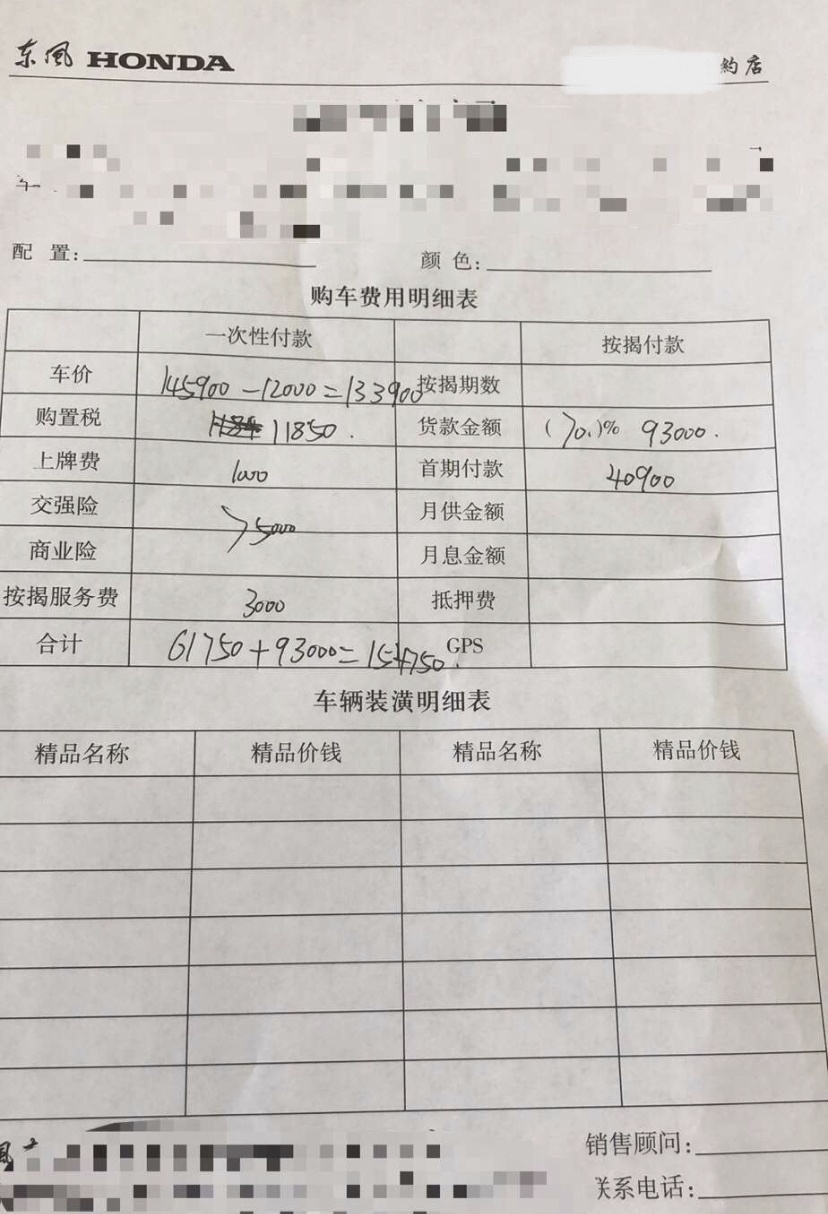 东风 HONDA
約店
配 置:
颜 色:
购车费用明细表
一次性付款 按揭付款
车价 145900-12000=133900 按揭期数
购置税 11850. 货款金额 (70.)% 93000.
上牌费 1000 首期付款 40900
交强险 >5000 月供金额
商业险 月息金额
按揭服务费 3000 抵押费
合计 61750+93000=154750. GPS
车辆装潢明细表
精品名称 精品价钱 精品名称 精品价钱
销售顾问:
联系电话: